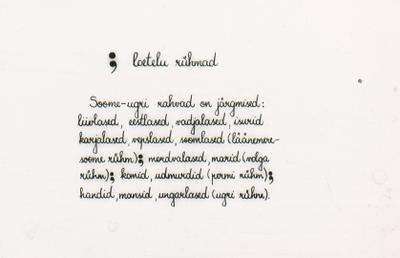 ; loetelu rühmad
Soome-ugri rahvad on järgmised:
liivlased, eestlased, vadjalased, isurid
karjalased, vepslased, soomlased (läänemere-
soome rühm); mordvalased, marid (volga
rühm); komid, udmurdid (permi rühm);
handid, mansid, ungarlased (ugri rühm).